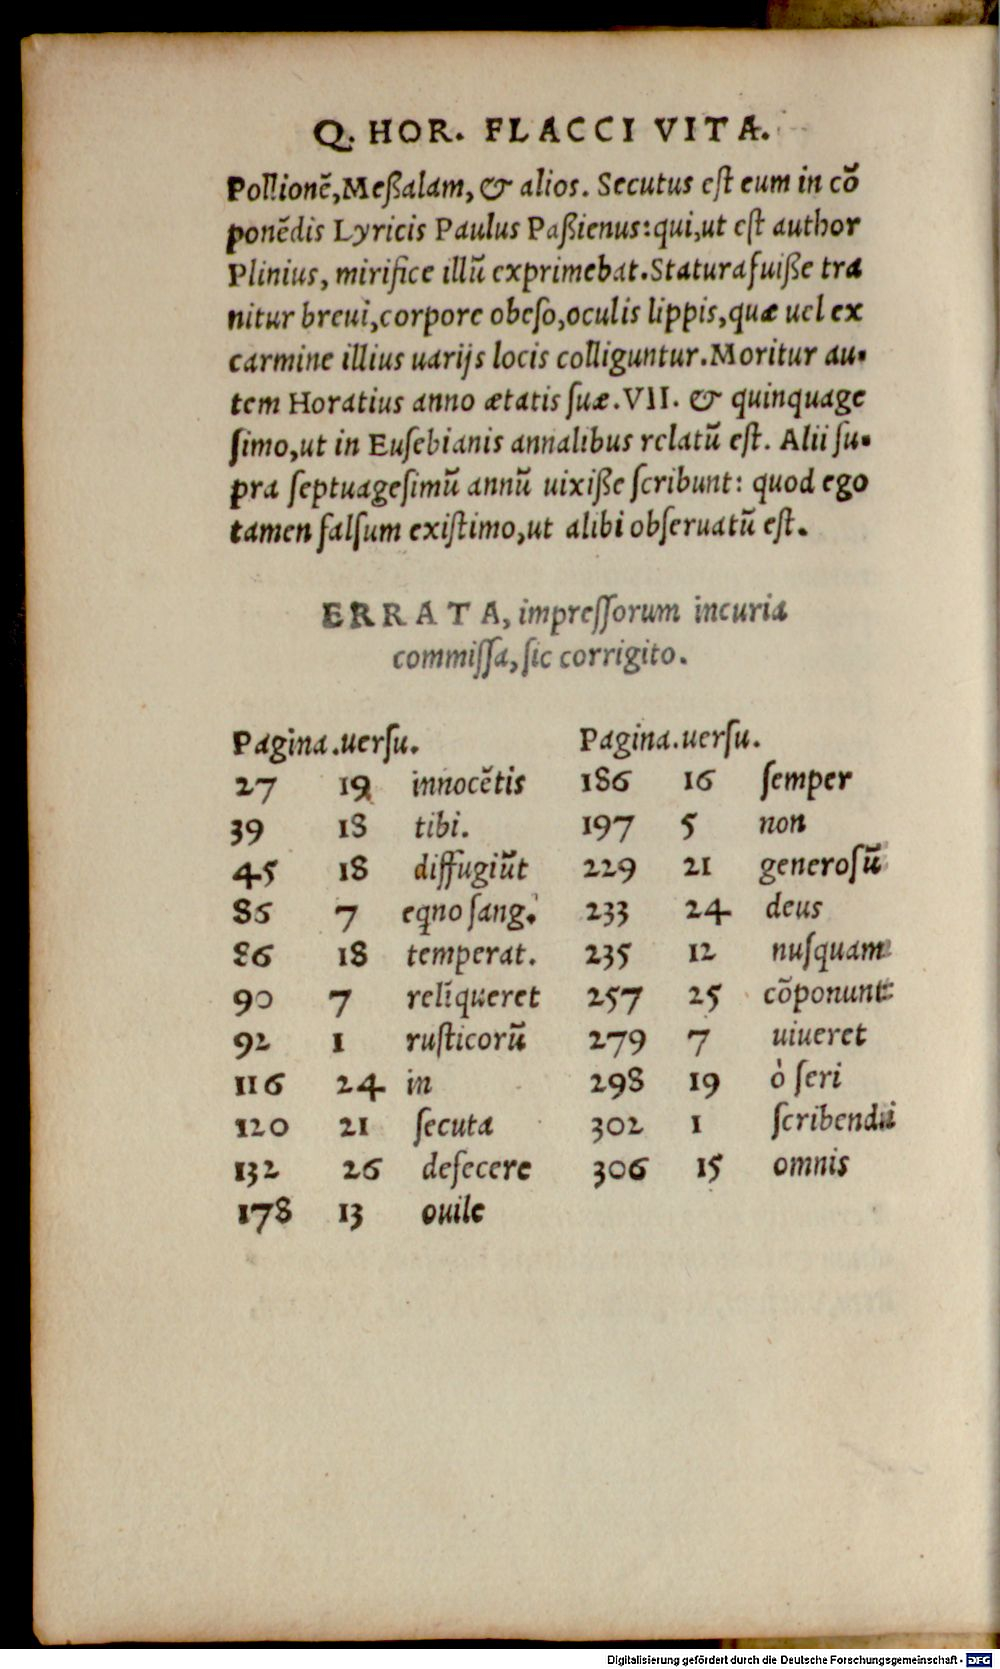 Q. HOR. FLACCI VITA.
Pollionẽ, Meßalam, & alios. Secutus eſt eum in cõ
ponẽdis Lyricis Paulus Paßienus: qui, ut eſt author
Plinius, mirifice illũ exprimebat. Statura fuiße tra
nitur breui, corpore obeſo, oculis lippis, quæ uel ex
carmine illius uarijs locis colliguntur. Moritur au-
tem Horatius anno ætatis ſuæ. VII. & quinquage
ſimo, ut in Euſebianis annalibus relatũ eſt. Alii ſu-
pra ſeptuageſimũ annũ uixiße ſcribunt: quod ego
tamen falſum exiſtimo, ut alibi obſeruatũ eſt.
ERRATA, impreſſorum incuria
commiſſa, ſic corrigito.
Pagina. uerſu.
27 19 innocẽtis
39 18 tibi.
45 18 diffugiũt
86 7 eq̃no ſang.
86 18 temperat.
90 7 relĩqueret
92 1 ruſticorũ
116 24 in
120 21 ſecuta
132 26 defecere
178 13 ouile
Pagina. uerſu.
186 16 ſemper
197 5 non
229 21 generoſũ
233 24 deus
235 12 nuſquam
257 25 cõponunt
279 7 uiueret
298 19 ò ſeri
302 1 ſcribendi
306 15 omnis
Digitalisierung gefördert durch die Deutsche Forschungsgemeinschaft - DFG